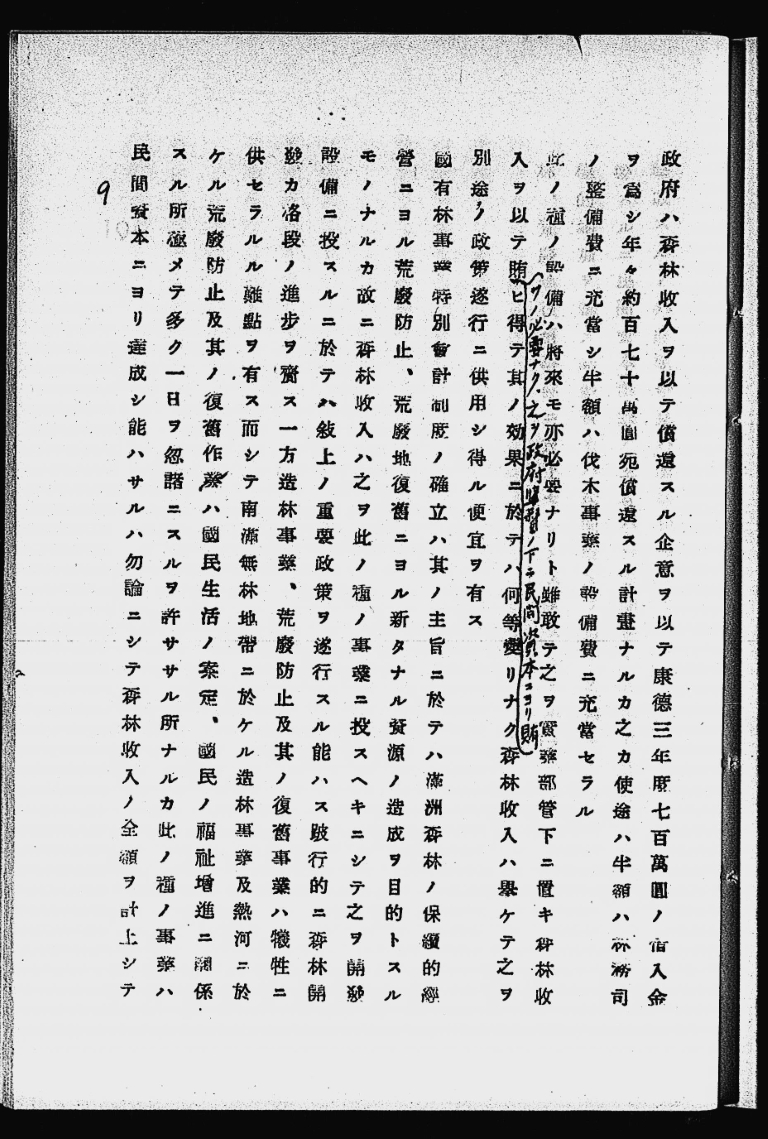 政府ハ森林收入ヲ以テ償還スル企意ヲ以テ康德三年度七百萬圓ノ借入金
ヲ爲シ年々約百七十萬圓宛償還スル計畫ナルカ之カ使途ハ半額ハ林務司
ノ整備費ニ充當シ半額ハ伐木事業ノ設備費ニ充當セラル
此ノ種ノ設備ハ將來モ亦必要ナリト雖敢テ之ヲ實業部管下ニ置キ森林收
ノ必要ナク之ヲ政府監督ノ下ニ民間資本ニヨリ賄
入ヲ以テ賄ヒ得テ其ノ効果ニ於テハ何等變リナク森林收入ハ擧ケテ之ヲ
別途ノ政策遂行ニ供用シ得ル便宜ヲ有ス
國有林事業特別會計制度ノ確立ハ其ノ主旨ニ於テハ滿洲森林ノ保續的經
營ニヨル荒廢防止、荒廢地復舊ニヨル新タナル資源ノ造成ヲ目的トスル
モノナルカ故ニ森林收入ハ之ヲ此ノ種ノ事業ニ投スヘキニシテ之ヲ開發
設備ニ投スルニ於テハ敍上ノ重要政策ヲ遂行スル能ハス跛行的ニ森林開
發カ格段ノ進步ヲ齎ス一方造林事業、荒廢防止及其ノ復舊事業ハ犧牲ニ
供セラルル難點ヲ有ス而シテ南滿無林地帶ニ於ケル造林事業及熱河ニ於
ケル荒廢防止及其ノ復舊作業ハ國民生活ノ安定、國民ノ福祉增進ニ關係
スル所極メテ多ク一日ヲ忽諸ニスルヲ許ササル所ナルカ此ノ種ノ事業ハ
民間資本ニヨリ達成シ能ハサルハ勿論ニシテ森林收入ノ全額ヲ計上シテ
9